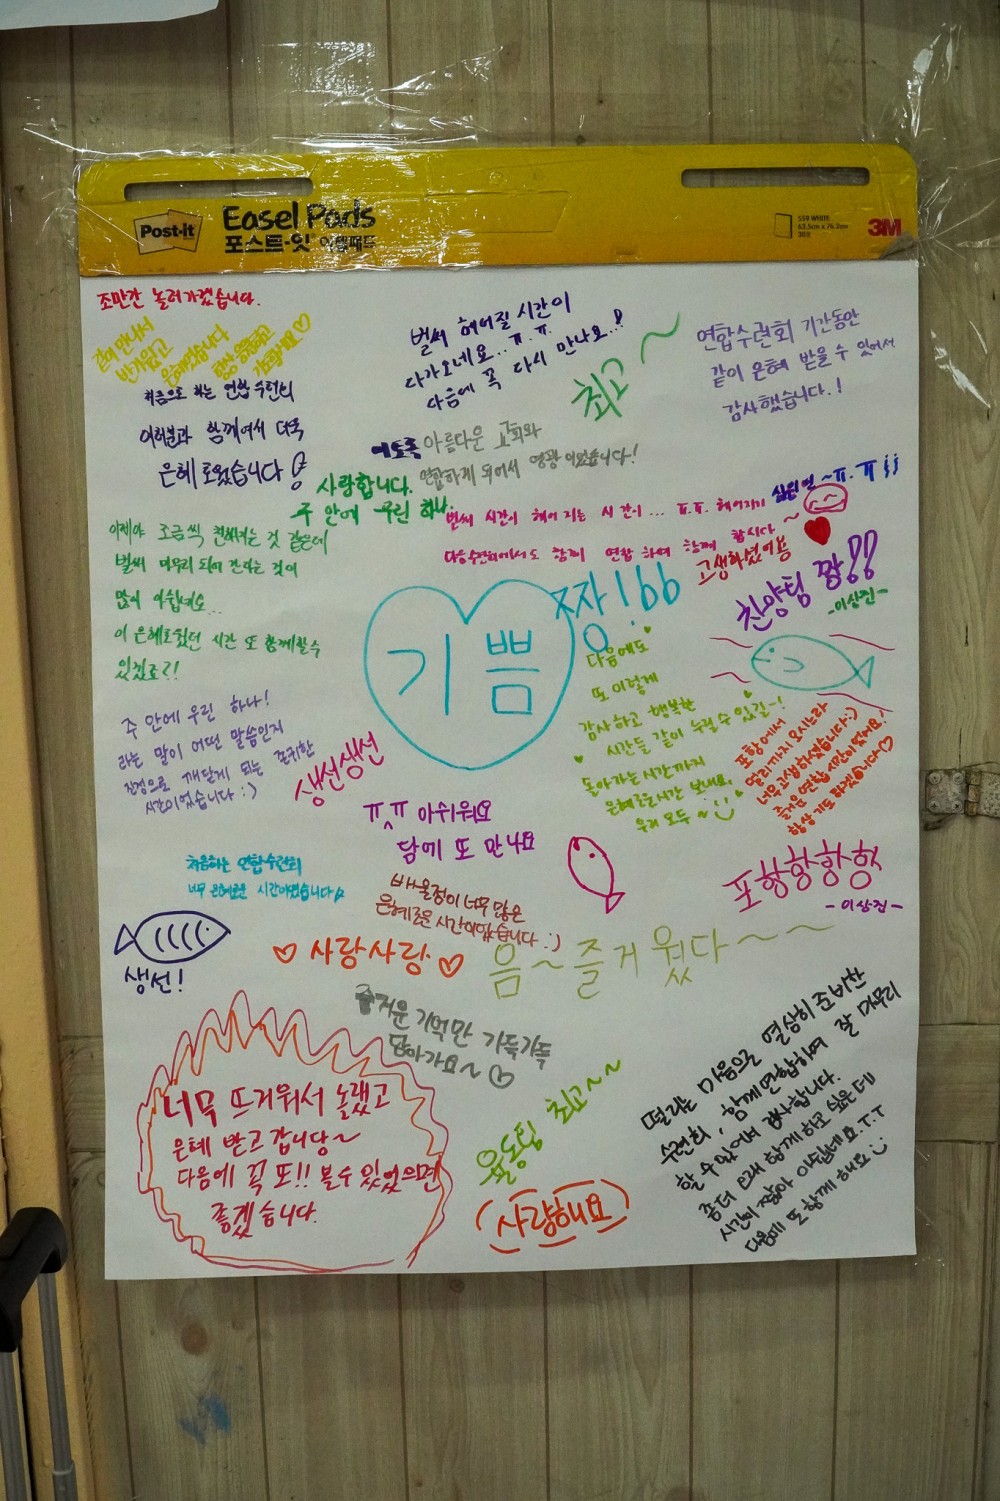 Post-it
Easel Pads
포스트-잇 이젤패드
559 WHITE
63.5cm x 76.2cm
30매
3M
조만간 놀러가겠습니다.
같이 만나서
반가웠고
은혜였습니다
항상 응원하고
기도할게요♡
처음으로 하는 연합 수련회
여러분과 함께여서 더욱
은혜로웠습니다
벌써 헤어질 시간이
다가오네요..ㅠ.ㅠ.
다음에 꼭 다시 만나요..!
최고~
연합수련회 기간동안
같이 은혜 받을 수 있어서
감사했습니다.!
이토록 아름다운 교회와
연합하게 되어서 영광이었습니다!
사랑합니다.
주 안에 우린 하나.
벌써 시간이 헤어지는 시간이... ㅠ.ㅠ. 헤어지기 싫은데~ㅠ.ㅠ
다음수련회에서도 함께 연합하여 함께 합시다~
고생하셨어용
이제야 조금씩 친해지는 것 같은데
벌써 마무리 되어 간다는 것이
많이 아쉽네요...
이 은혜로웠던 시간 또 함께할 수
있겠죠?!
기쁨
짱!bb
찬양팀 짱!!
-이상진-
다음에도
또 이렇게
감사하고 행복한
시간들 같이 누릴 수 있길~!
돌아가는 시간까지
은혜로운 시간 보내요,
우리 모두~
포항에서
멀리까지 오시느라
너무 고생하셨습니다:)
즐거운 연합 시간이었어요!
항상 기도하겠습니다♡
주 안에 우린 하나!
라는 말이 어떤 말씀인지
진정으로 깨닫게 되는 존귀한
시간이었습니다 :)
생선생선
ㅠ^ㅠ 아쉬워요
담에 또 만나요
포항항항항
-이상진-
처음하는 연합수련회
너무 은혜로운 시간이였습니다☆
배울점이 너무 많은
은혜로운 시간이었습니다 :)
생선!
♡ 사랑사랑 ♡
음~즐거웠다~~
즐거운 기억만 가득가득
담아가요~♡
너무 뜨거워서 놀랬고
은혜 받고 갑니당~
다음에 꼭 또!! 볼 수 있었으면
좋겠습니다.
율동팀 최고~~
(사랑해요)
떨리는 마음으로 열심히 준비한
수련회, 함께 연합하여 잘 마무리
할 수 있어서 감사합니다.
좀더 오래 함께 하고 싶은데
시간이 짧아 아쉽네요.T.T
다음에 또 함께 해요